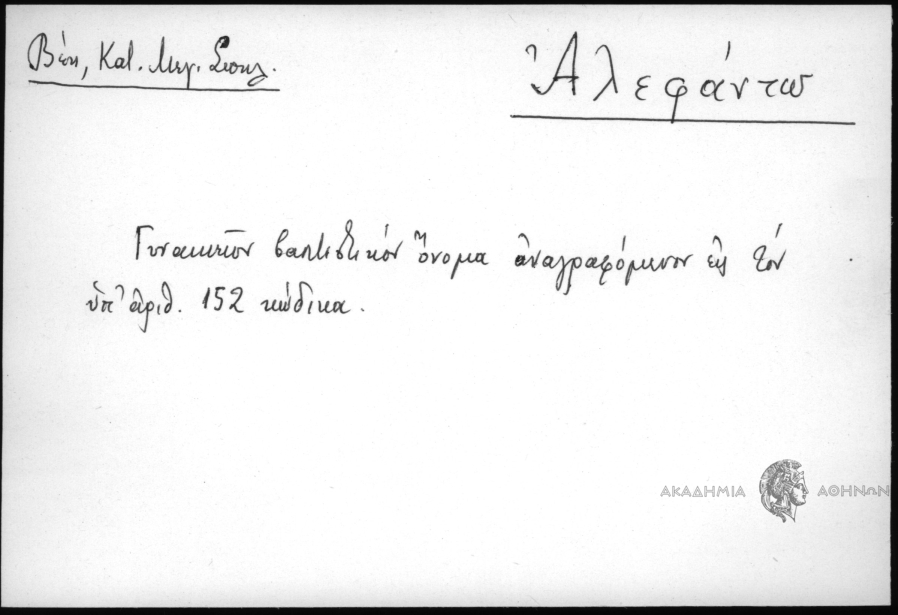 Βέη, Κατ. Μεγ. Σπηλ.
Ἀλεφάντω
Γυναικεῖον βαπτιστικόν ὄνομα ἀναγραφόμενον εἰς τόν
ὑπ' ἀριθ. 152 κώδικα.
ΑΚΑΔΗΜΙΑ ΑΘΗΝΩΝ